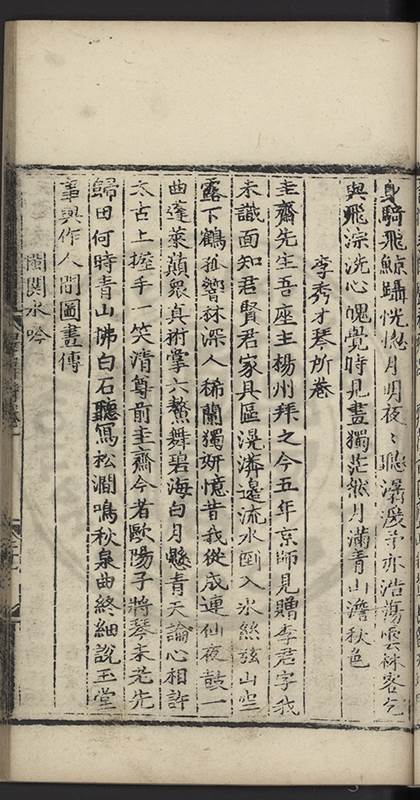 身騎飛鯨躡恍惚月明夜〻聽瀑湲寺亦浩蕩雲林客乞
與飛淙洗心魄覺時見畫獨茫然月滿青山澹秋色
李秀才琴所卷
圭齋先生吾座主楊州拜之今五年京師見贈李君字我
未識面知君賢君家具區滉瀁邊流水倒入冰絲弦山空
露下鶴孤響林深人稀蘭獨妍憶昔我從成連仙夜鼓一
曲蓬萊巔眾真拊掌六鰲舞碧海白月懸青天論心相許
太古上握手一笑清尊前圭齋今者歐陽子將琴未老先
歸田何時青山佛白石聽寫松澗鳴秋泉曲終細說玉堂
事與作人間圖畫傳
蘭閨水吟